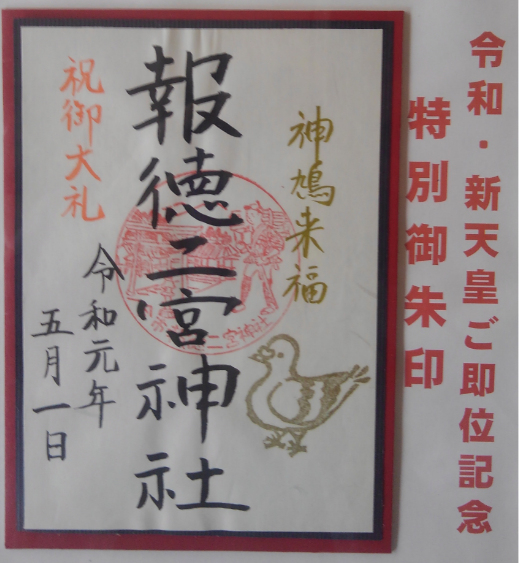 令和・新天皇ご即位記念
特別御朱印
神鳩来福
報徳二宮神社
祝御大礼
令和元年
五月一日
二宮神社